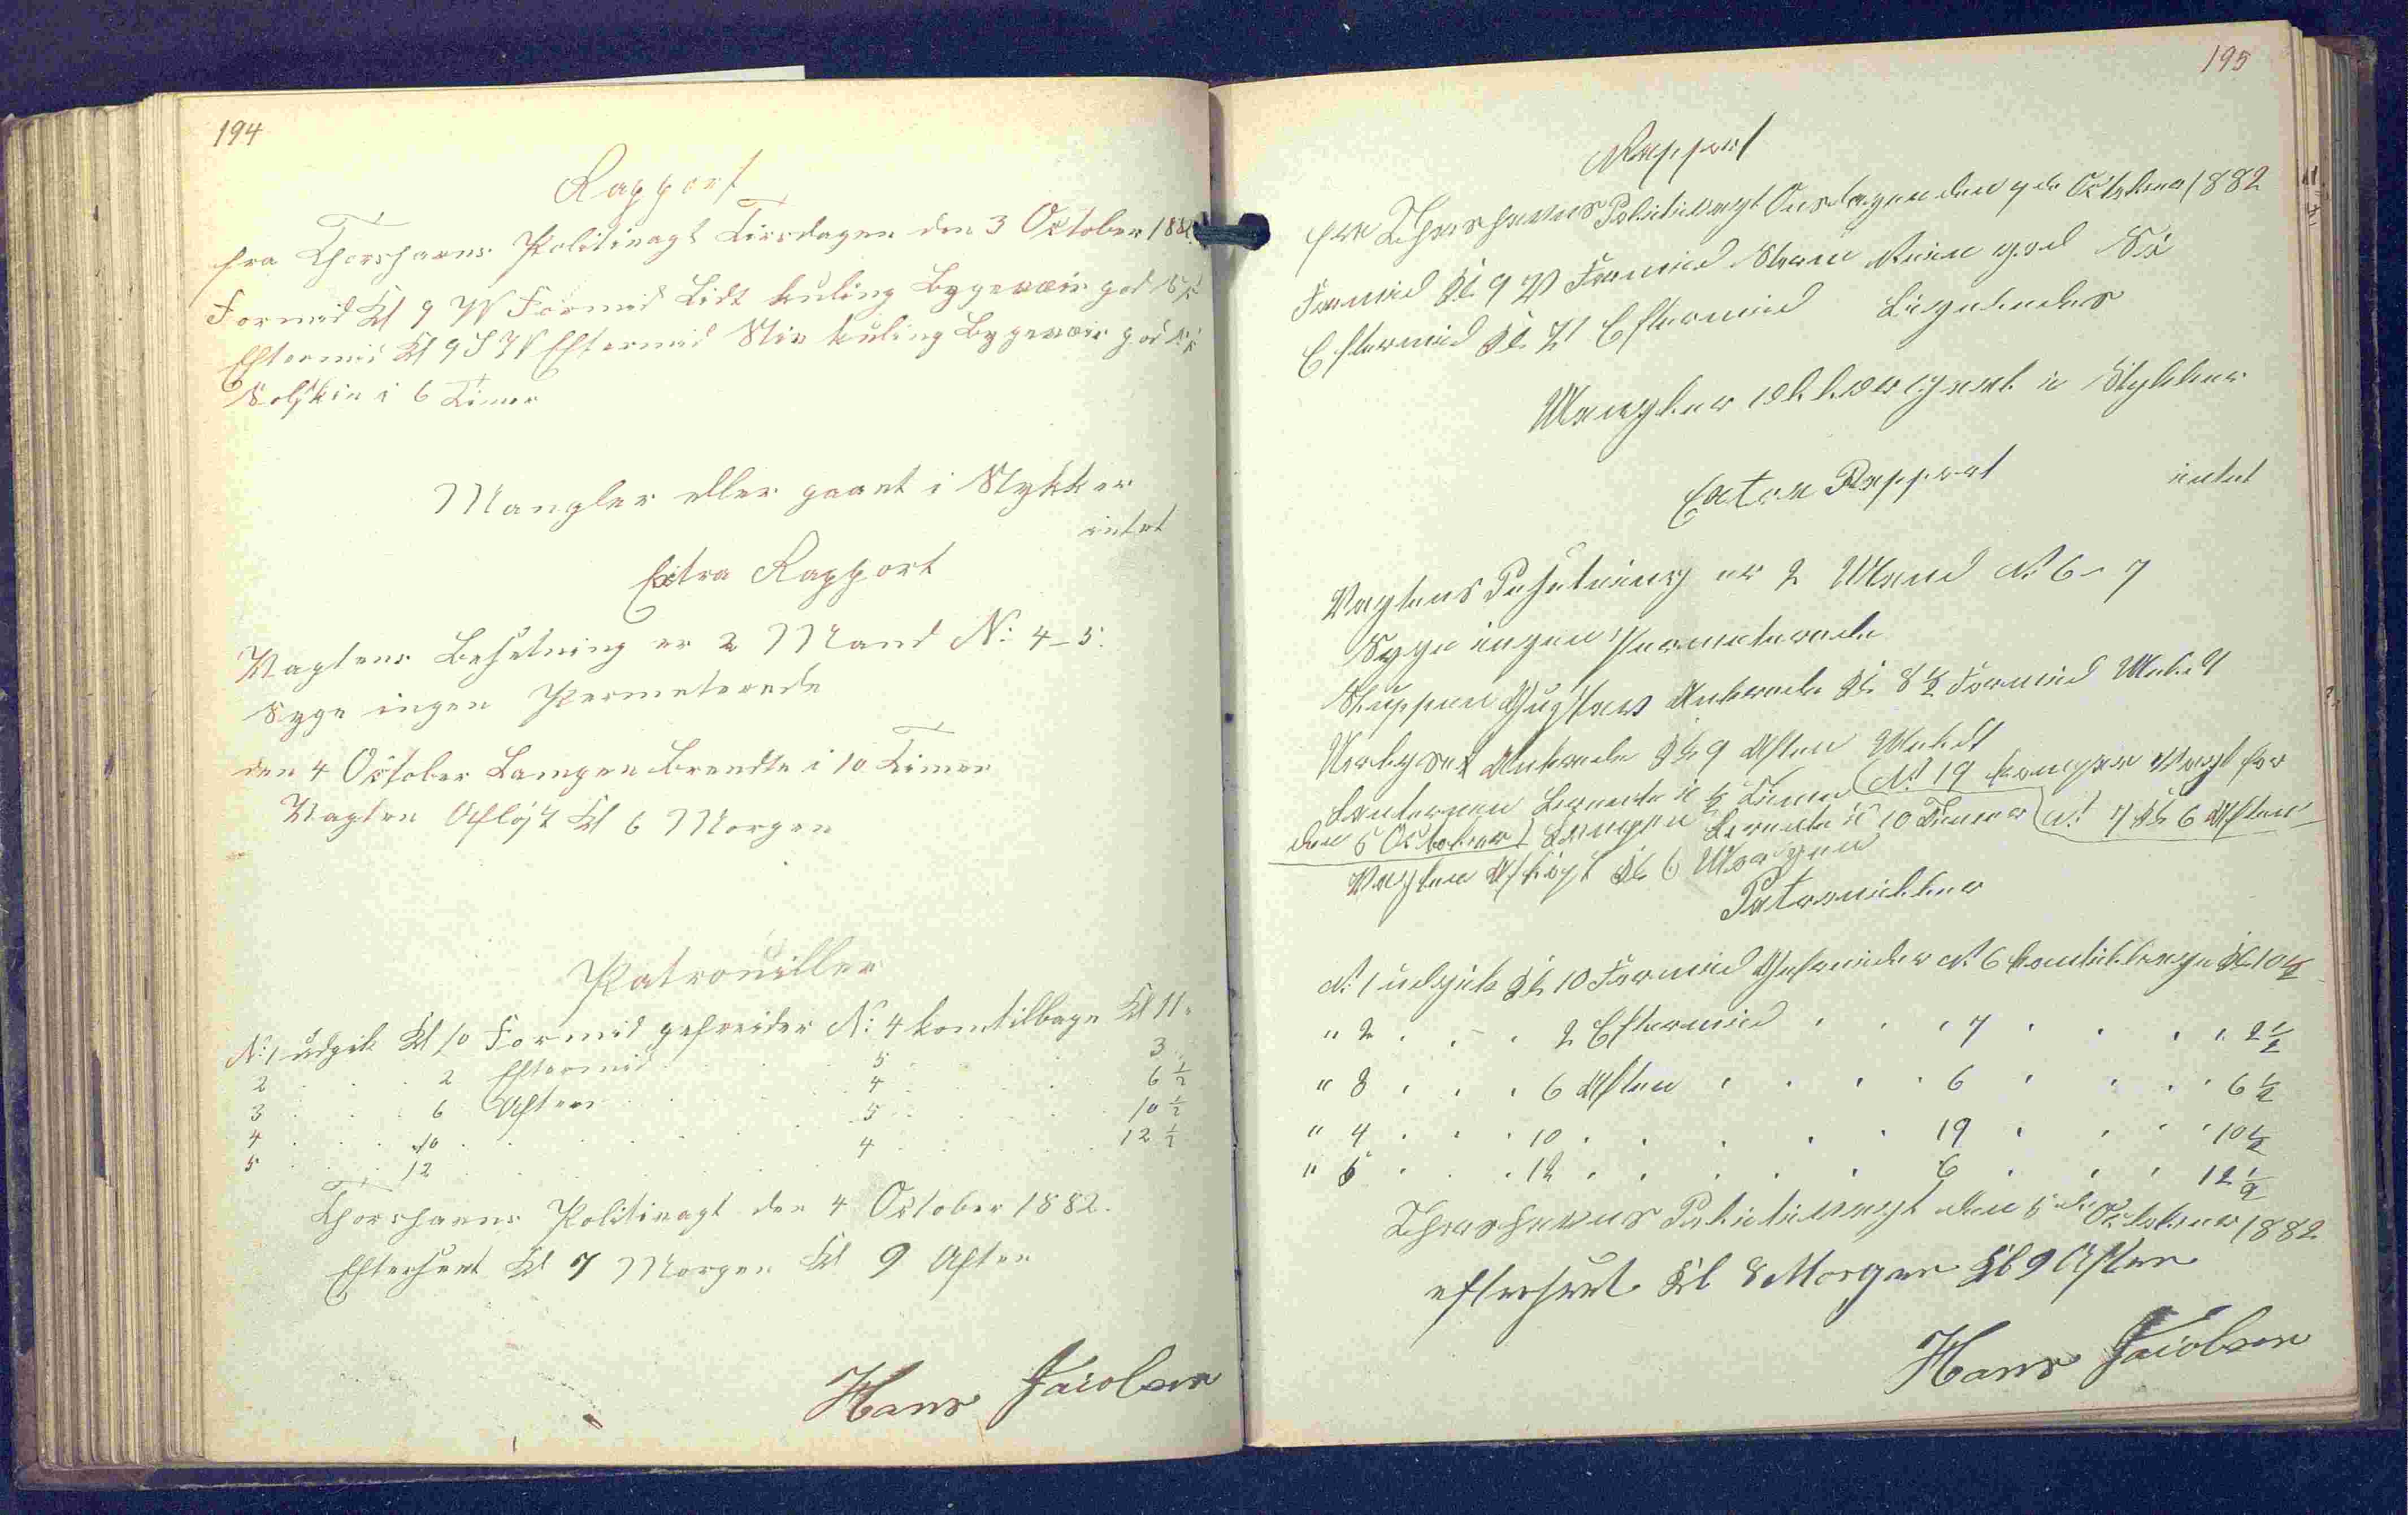 194
Rapport
fra Thorshavns Politivagt Tirsdagen den 3 October 1882
Formid Kl 9 W Formid Lidt kuling Bygevæir god Sÿ
Eftermid Kl 9 S W Eftermid Stiv kuling Bygevæir god Sÿ
Solskin i 6 Timer
Mangler eller gaaet i Stykker
intet
Extra Rapport
Vagtens Besetning er 2 Mand No: 4-5.
Syge ingen Permeterede
den 4 October Lampen brendte i 10 Timer
Vagten Afløst Kl 6 Morgen
Patrouiller
No: 1 udgik Kl 10 Formid gefreider No: 4 kom tilbage Kl 11
2 . . . 2 Eftermid . . 5 . . 3
3 . . . 6 Aften . . 4 . . 6 ½
4 . . . 10 . . . 5 . . 10 ½
5 . . . 12 . . . 4 . . 12 ½
Thorshavns Politivagt den 4 October 1882.
Efterseet Kl 7 Morgen Kl 9 Aften
Hans Jacobsen
195
Rapport
fra Thorshavns Politivagt Onsdagen den 4de October 1882
Formid Kl 9 V Formid Storm god Sÿ
Eftermid Kl Eftermid Ligeledes
Mangler eller gaaet i Stykker
intet
Extra Rapport
Vagtens Besetning er 2 Mand No 6-7
Syge ingen Permeterede
Skuppen Gustav Ankrede Kl 8½ Formid
Ankrede Kl 9 Aften
Lanternen brendte i ½ Time No 19 kom paa Vagt for
den 5 October Lampen brendte i 10 Timer No 7 Kl 6 Aften
Vagten Afløst Kl 6 Morgen
Patrouiller
No 1 udgik Kl 10 Formid Gefreider No 6 kom tilbage Kl 10½
" 2 . . . 2 Eftermid . . . 7 . . . 2½
" 3 . . . 6 Aften . . . 6 . . . 6½
" 4 . . . 10 . . . 19 . . . 10½
" 5 . . . 12 . . . 6 . . . 12½
Thorshavns Politivagt den 5de October 1882
efterseet Kl 8 Morgen Kl 9 Aften
Hans Jacobsen